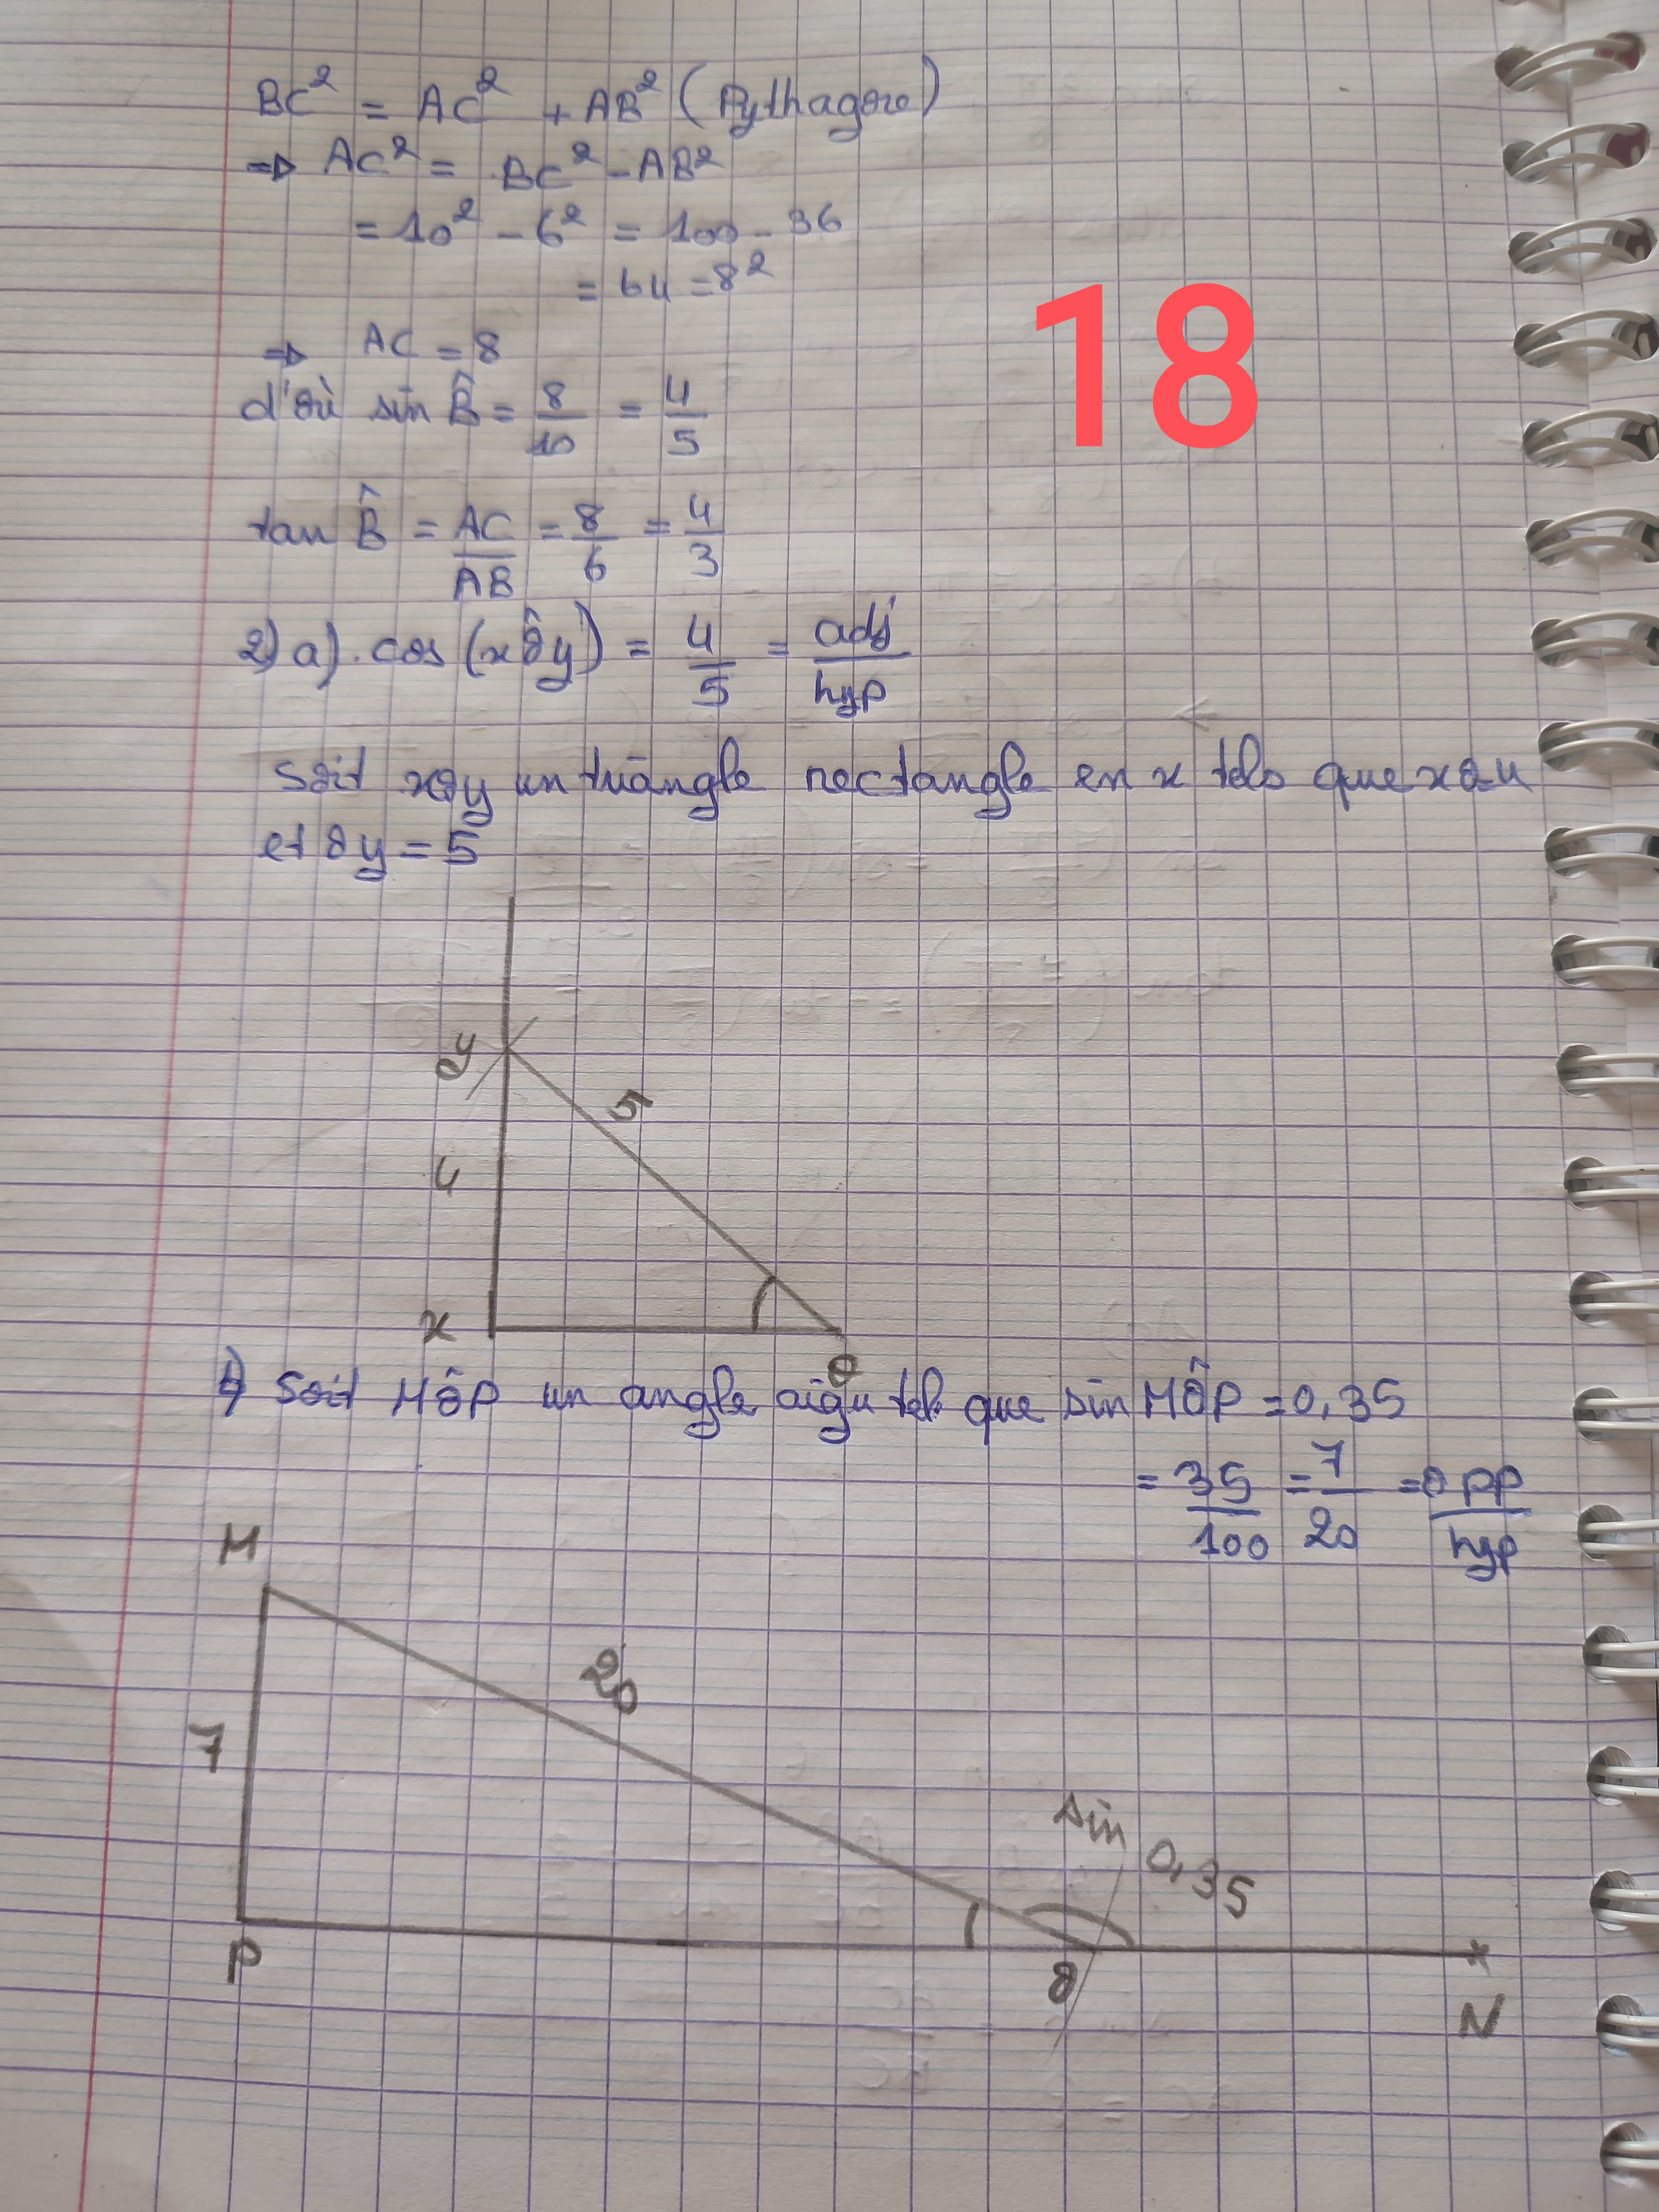 BC² = AC² + AB² (Pythagore)
⇒ AC² = BC² - AB²
= 10² - 6² = 100 - 36
= 64 = 8²
18
⇒ AC = 8
d'où sin B̂ = 8/10 = 4/5
tan B̂ = AC/AB = 8/6 = 4/3
2) a). cos (xôy) = 4/5 = adj/hyp
Soit xoy un triangle rectangle en x tels que xo=4
et oy = 5
y
5
4
x
O
b) Soit MôP un angle aigu tel que sin MÔP = 0,35
= 35/100 = 7/20 = opp/hyp
M
20
7
sin
0,35
P
O
N